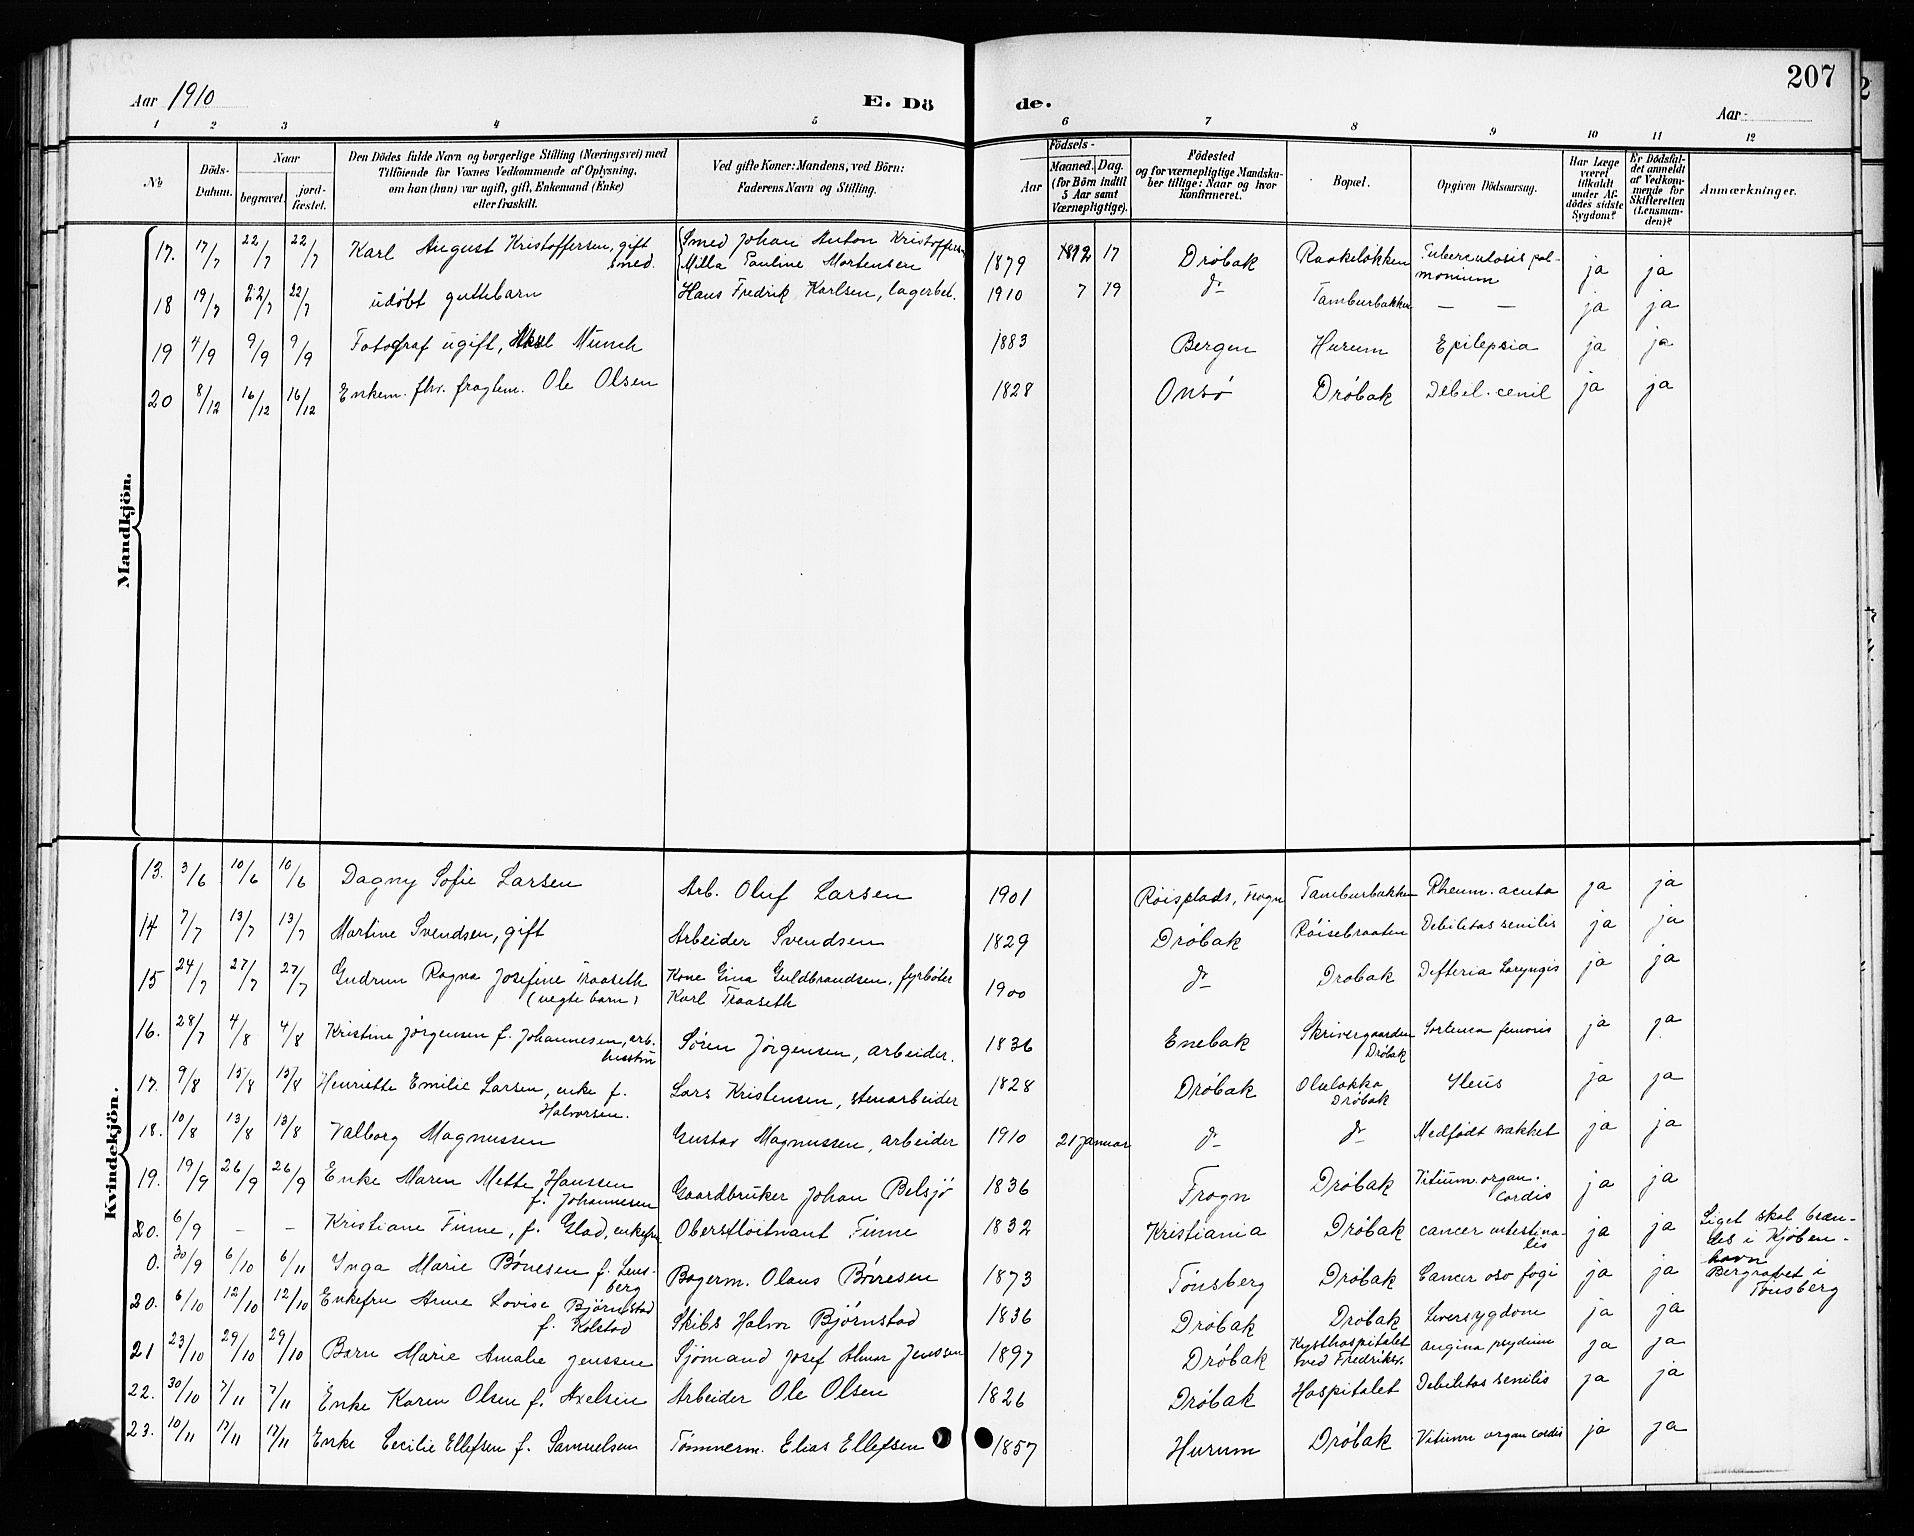 207
Aar 1910
E. Dö de.
Aar
1 2 3 4 5 6 7 8 9 10 11 12
No
Döds-Datum.
Naar
begravet.
jord-fæstet.
Den Dödes fulde Navn og borgerlige Stilling (Næringsvei) med
Tilföiende for Voxnes Vedkommende af Oplysning,
om han (hun) var ugift, gift, Enkemand (Enke)
eller fraskilt.
Ved gifte Koner: Mandens, ved Börn:
Faderens Navn og Stilling.
Födsels-
Aar
Maaned. Dag.
(for Börn indtil
5 Aar samt
Værnepligtige).
Födested
og for værnepligtige Mandska-
ber tillige: Naar og hvor
konfirmeret.
Bopæl.
Opgiven Dödsaarsag.
Har Læge
været
tilkaldt
under Af-
dödes sidste
Sygdom?
Er Dödsfal-
det anmeldt
af Vedkom-
mende for
Skifteretten
(Lensman-
den)?
Anmærkninger.
Mandkjön.
17. 17/7 22/7 22/7 Karl August Kristoffersen, gift smed. Smed Johan Anton Kristoffersen Milla Pauline Mortensen 1879 12 17 Dröbak Raakeløkken Tuberculosis pulmonium ja ja
18 19/7 22/7 22/7 udöbt guttebarn Hans Fredrik Karlsen, lagerbet. 1910 7 19 do Tamburbakken — — ja ja
19 4/9 9/9 9/9 Fotograf ugift, Münch 1883 Bergen Hurum Epilepsia ja ja
20 8/12 16/12 16/12 Enkem. fhv. fragtem. Ole Olsen 1828 Onsø Dröbak Debil. cenil ja ja
Kvindekjön.
13. 3/6 10/6 10/6 Dagny Sofie Larsen Arb. Oluf Larsen 1901 Röisplads, Frogn Tamburbakken Rheum. acuta ja ja
14 7/7 13/7 13/7 Martine Svendsen, gift Arbeider Svendsen 1829 Dröbak Röisebraaten Debilitas senilis ja ja
15 24/7 27/7 27/7 Gudrun Ragna Josefine Traaseth Kone Gina Guldbrandsen, fyrbøter Karl Traaseth 1900 do Drobak Difteria Laryngis ja ja
16. 28/7 4/8 4/8 Kristine Jörgensen f. Johannesen, arb. Søren Jörgensen, arbeider. 1836 Enebak Skrivergaarden Dröbak femoris ja ja
17. 9/8 15/8 15/8 Henriette Emilie Larsen, enke f. Halvorsen. Lars Kristensen, stenarbeider 1828 Dröbak Oluløkka Dröbak Ileus ja ja
18. 10/8 13/8 13/8 Valborg Magnussen Gustav Magnussen, arbeider 1910 21 januar do do Medfödt svakhet ja ja
19. 19/9 26/9 26/9 Enke Maren Mette Hanssen f. Johannesen Gaardbruker Johan Belsjø 1836 Frogn Dröbak Vitium organ. Cordis ja ja
20. 6/9 — — Kristiane Finne, f. Glad, enkefru Oberstløitnant Finne 1832 Kristiania Dröbak cancer intestinalis ja ja Liget skal brændes i Kjöbenhavn
0. 30/9 6/10 6/11 Inga Marie f. Lensberg Bagerm. Olaus 1873 Tønsberg Dröbak Cancer oso fogi ja ja i Tønsberg
20. 6/10 12/10 12/10 Enkefru Anne Lovise Björnstad f. Kolstad Skibs Halvor Björnstad 1836 Dröbak Dröbak Leversygdom ja ja
21 23/10 29/10 29/10 Barn Marie Amalie Jenssen Sjömand Josef Jenssen 1897 Dröbak Kysthospitalet ved Fredriksv. angina ja ja
22. 30/10 7/11 7/11 Enke Karen Olsen f. Axelsen Arbeider Ole Olsen 1826 Dröbak Hospitalet Debilitas senilis ja ja
23. 10/11 17/11 17/11 Enke Cecilie Ellefsen f. Samuelsen Tømmerm. Elias Ellefsen 1857 Hurum Dröbak Vitium organ cordis ja ja